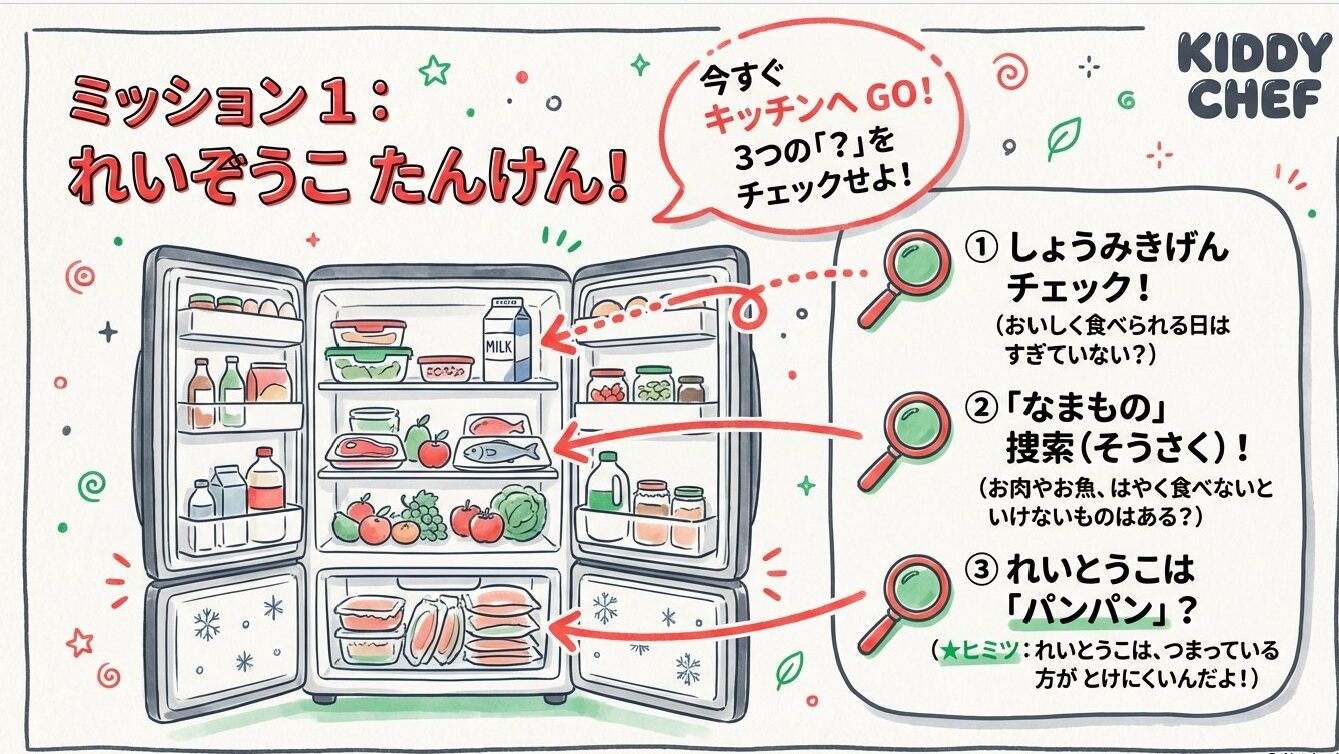 ミッション1：
れいぞうこ たんけん！
今すぐ
キッチンへ GO！
3つの「？」を
チェックせよ！
KIDDY
CHEF
MILK
① しょうみきげん
チェック！
（おいしく食べられる日は
すぎていない？）
② 「なまもの」
捜索（そうさく）！
（お肉やお魚、はやく食べないと
いけないものはある？）
③ れいとうこは
「パンパン」？
（★ヒミツ：れいとうこは、つまっている
方が とけにくいんだよ！）